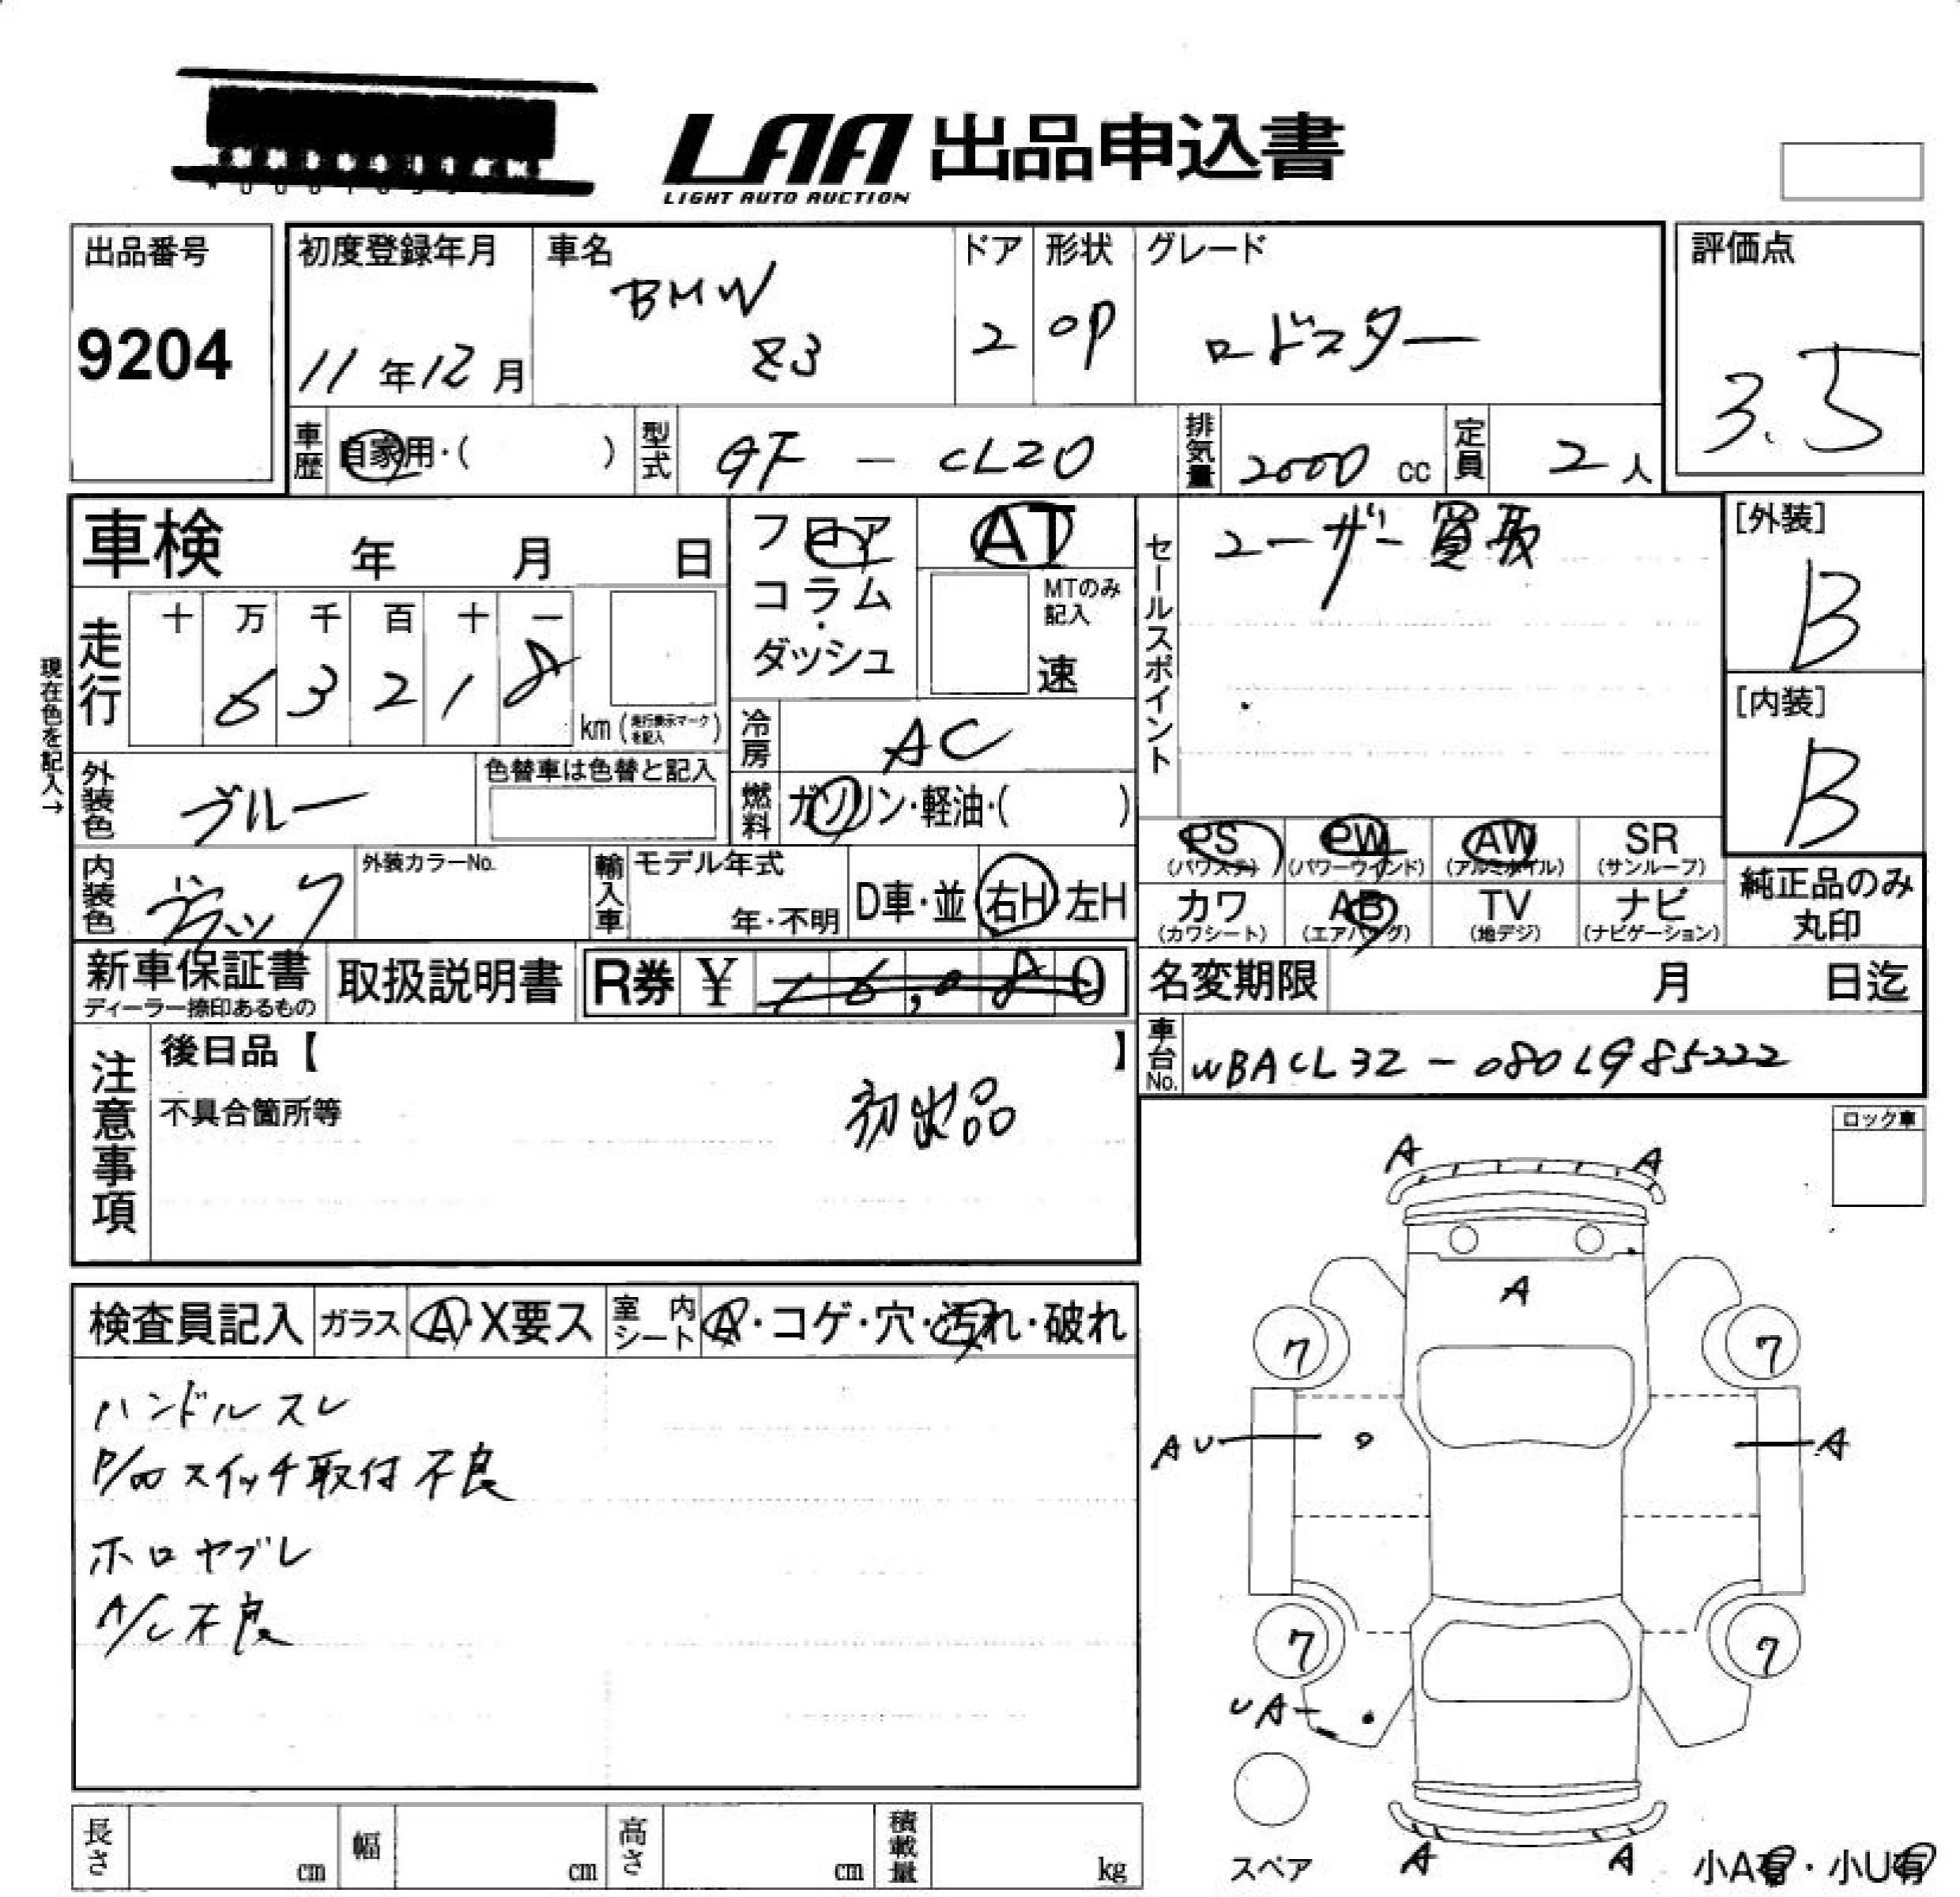 LAA 出品申込書
LIGHT AUTO AUCTION
出品番号
9204
初度登録年月
11年12月
車名
BMW
Z3
ドア
2
形状
OP
グレード
ロードスター
評価点
3.5
車歴
自家用・( )
型式
GF - CL20
排気量
2000 cc
定員
2人
車検 年 月 日
フロア
コラム
・
ダッシュ
AT
MTのみ
記入
速
セールスポイント
ユーザー買取
[外装]
B
[内装]
B
現在色を記入→
走行
十 万 千 百 十 一
6 3 2 1 8
km (走行表示マークを記入)
冷房
AC
外装色
ブルー
色替車は色替と記入
燃料
ガソリン・軽油・( )
PS
(パワステ)
PW
(パワーウインド)
AW
(アルミホイル)
SR
(サンルーフ)
内装色
ブラック
外装カラーNo.
輸入車
モデル年式
年・不明
D車・並
右H・左H
カワ
(カワシート)
AB
(エアバッグ)
TV
(地デジ)
ナビ
(ナビゲーション)
純正品のみ
丸印
新車保証書
ディーラー捺印あるもの
取扱説明書
R券 ¥ 16,080
名変期限 月 日迄
車台No.
WBACL32-080LG85222
注意事項
後日品【 】
不具合箇所等
初出品
ロック車
検査員記入
ガラス
A・X要ス
室内シート
A・コゲ・穴・汚れ・破れ
ハンドルスレ
P/Wスイッチ取付不良
ホロヤブレ
A/C不良
A A
A
7 7
AU A
7 7
UA
スペア
A A
小A有・小U有
長さ cm
幅 cm
高さ cm
積載量 kg